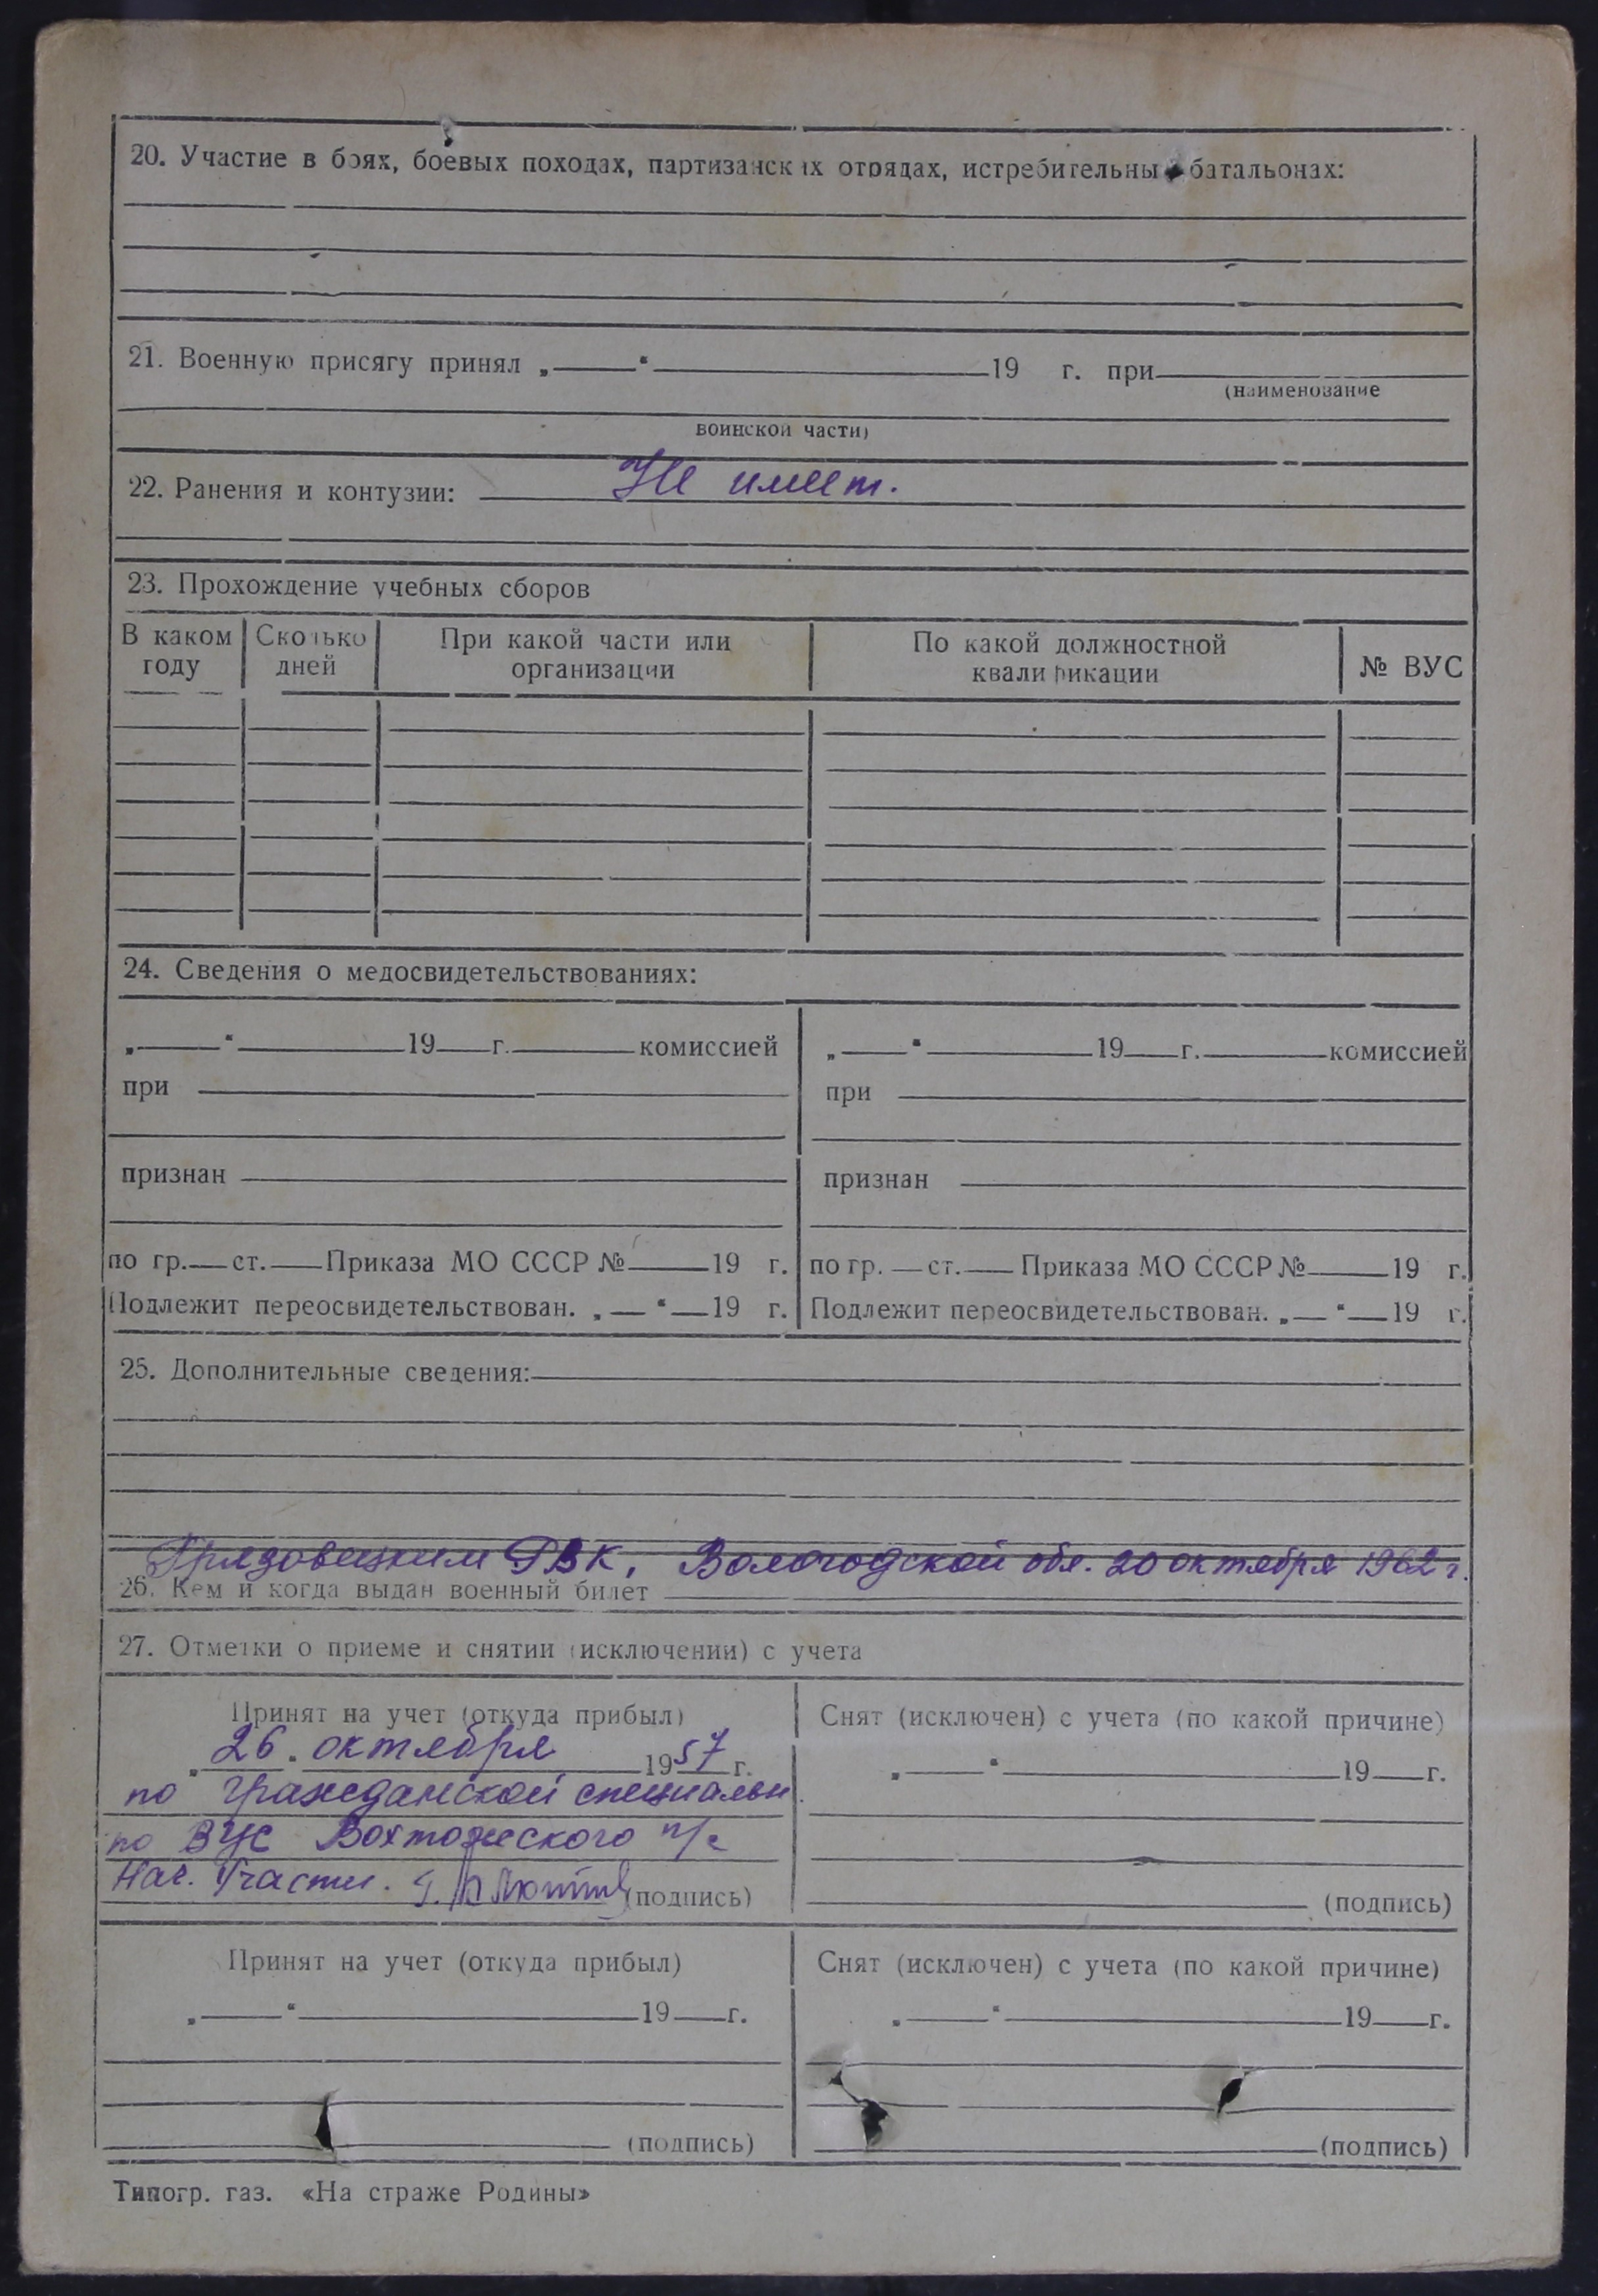 20. Участие в боях, боевых походах, партизанских отрядах, истребительны батальонах:
21. Военную присягу принял „ “ 19 г. при
(наименование
воинской части)
22. Ранения и контузии: Не имеет.
23. Прохождение учебных сборов
В каком году Сколько дней При какой части или организации По какой должностной квалификации № ВУС
24. Сведения о медосвидетельствованиях:
„ “ 19 г. комиссией „ “ 19 г. комиссией
при при
признан признан
по гр. ст. Приказа МО СССР № 19 г. по гр. ст. Приказа МО СССР № 19 г.
Подлежит переосвидетельствован. „ “ 19 г. Подлежит переосвидетельствован. „ “ 19 г.
25. Дополнительные сведения:
Грязовецким РВК, Вологодской обл. 20 октября 1962 г.
26. Кем и когда выдан военный билет
27. Отметки о приеме и снятии (исключении) с учета
Принят на учет (откуда прибыл) Снят (исключен) с учета (по какой причине)
„26“ октября 1957 г. „ “ 19 г.
по гражданской специальн
по ВУС Вохтожского п/с
Нач. Части. (подпись) (подпись)
Принят на учет (откуда прибыл) Снят (исключен) с учета (по какой причине)
„ “ 19 г. „ “ 19 г.
(подпись) (подпись)
Типогр. газ. «На страже Родины»